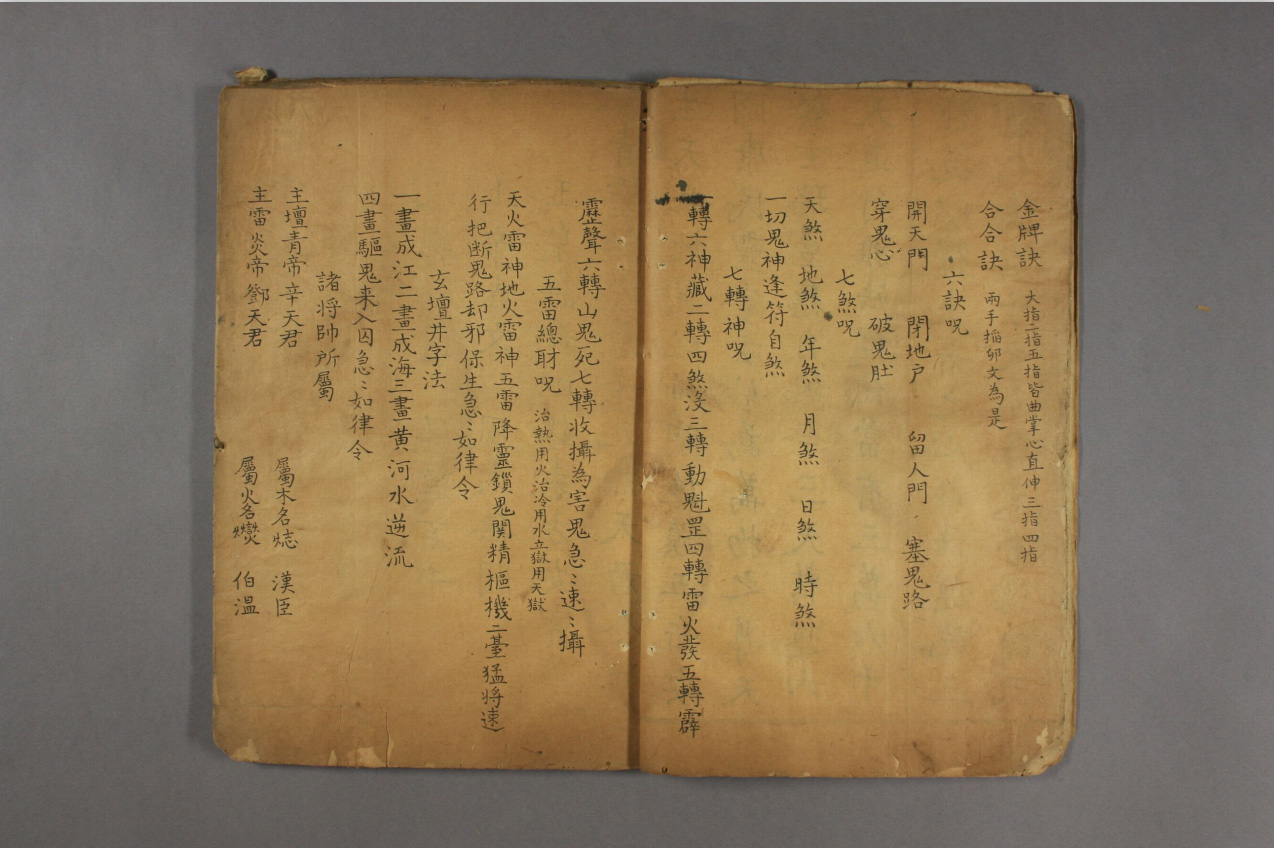 金牌訣 大指二指五指皆曲掌心直伸三指四指
合合訣 兩手掐卯文為是
六訣咒
開天門 閉地户 留人門 塞鬼路
穿鬼心 破鬼肚
七煞咒
天煞 地煞 年煞 月煞 日煞 時煞
一切鬼神逢符自煞
七轉神咒
一轉六神藏二轉四煞沒三轉動魁罡四轉雷火發五轉霹
靂聲六轉山鬼死七轉收攝為害鬼急〻速〻攝
五雷總財咒 治熱用火治冷用水立獄用天獄
天火雷神地火雷神五雷降靈鎖鬼関精樞機二臺猛将速
行把断鬼路却邪保生急〻如律令
玄壇井字法
一畫成江二畫成海三畫黄河水逆流
四畫驅鬼来入囚急〻如律令
諸将帥所屬
主壇青帝辛天君 屬木名 漢臣
主雷炎帝鄧天君 屬火名爕 伯温